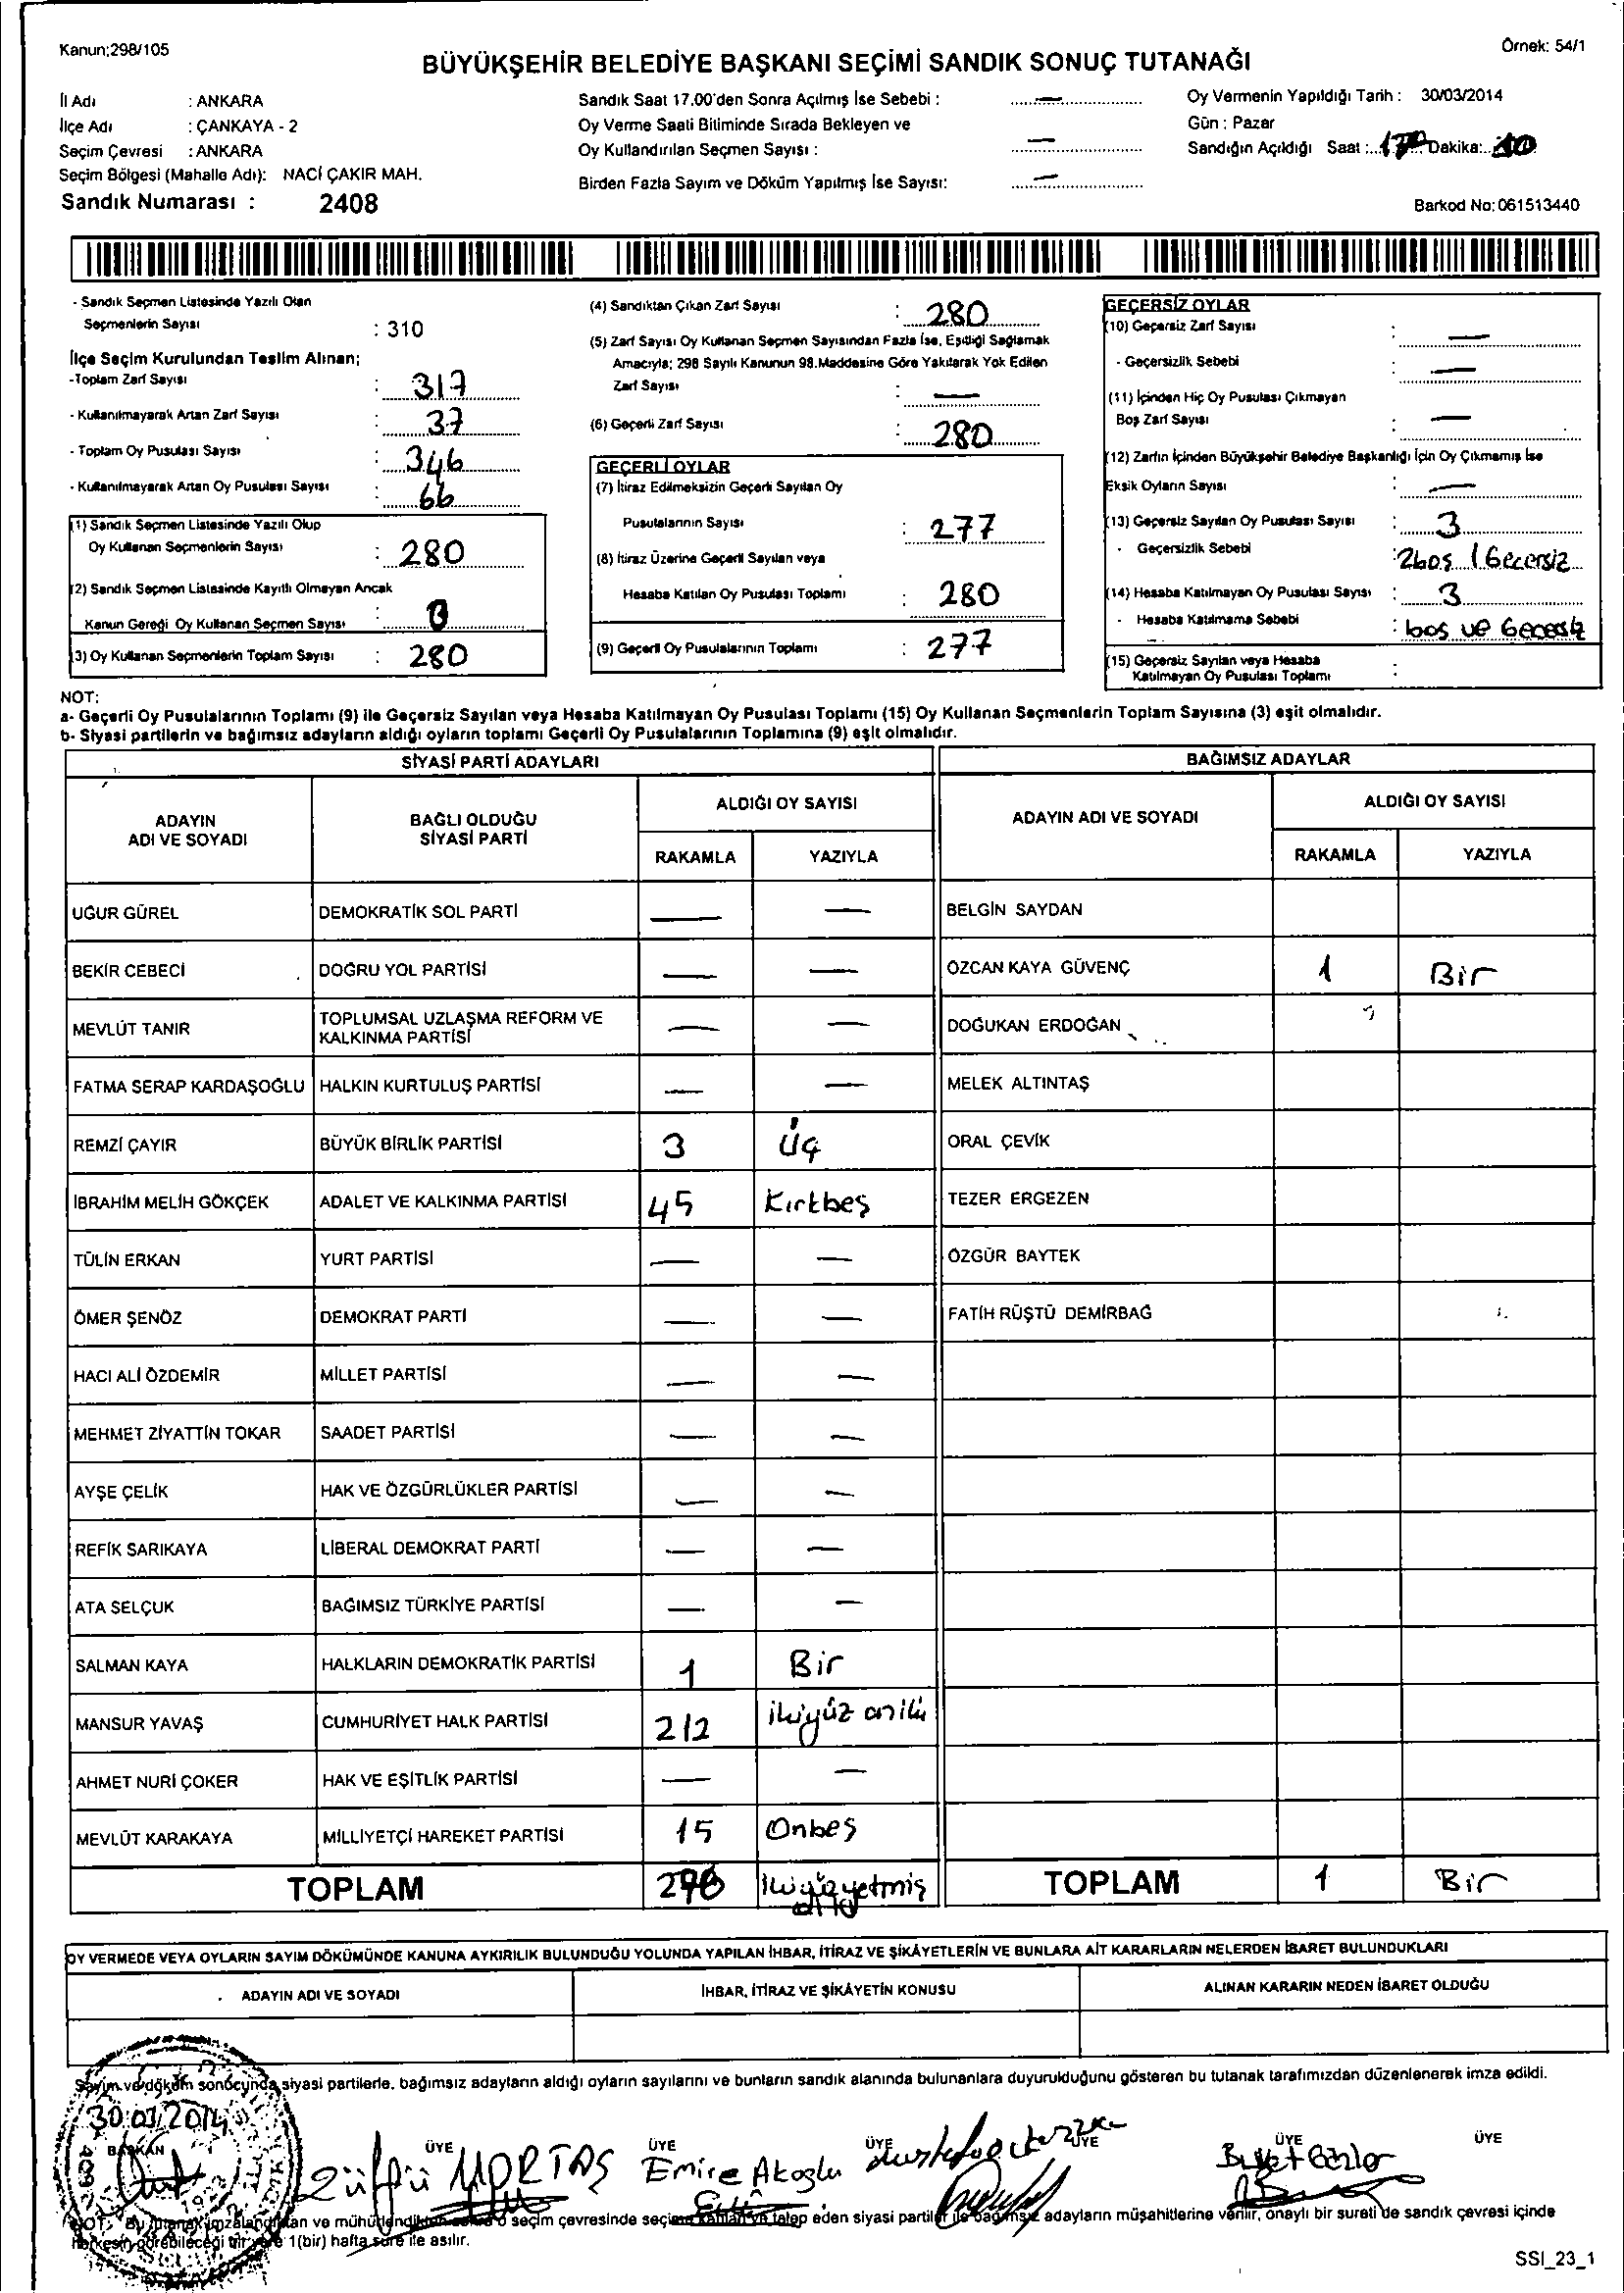 Kanun;298/105
Örnek: 54/1
BÜYÜKŞEHİR BELEDİYE BAŞKANI SEÇİMİ SANDIK SONUÇ TUTANAĞI
İl Adı : ANKARA
İlçe Adı : ÇANKAYA - 2
Seçim Çevresi : ANKARA
Seçim Bölgesi (Mahalle Adı): NACİ ÇAKIR MAH.
Sandık Numarası : 2408
Sandık Saat 17.00'den Sonra Açılmış İse Sebebi : —
Oy Verme Saati Bitiminde Sırada Bekleyen ve
Oy Kullandırılan Seçmen Sayısı : —
Birden Fazla Sayım ve Döküm Yapılmış İse Sayısı: —
Oy Vermenin Yapıldığı Tarih : 30/03/2014
Gün : Pazar
Sandığın Açıldığı Saat : Dakika:
Barkod No:061513440
- Sandık Seçmen Listesinde Yazılı Olan
Seçmenlerin Sayısı : 310
İlçe Seçim Kurulundan Teslim Alınan;
-Toplam Zarf Sayısı : 317
- Kullanılmayarak Artan Zarf Sayısı : 37
- Toplam Oy Pusulası Sayısı : 346
- Kullanılmayarak Artan Oy Pusulası Sayısı : 66
(1) Sandık Seçmen Listesinde Yazılı Olup
Oy Kullanan Seçmenlerin Sayısı : 280
(2) Sandık Seçmen Listesinde Kayıtlı Olmayan Ancak
Kanun Gereği Oy Kullanan Seçmen Sayısı : 0
(3) Oy Kullanan Seçmenlerin Toplam Sayısı : 280
(4) Sandıktan Çıkan Zarf Sayısı : 280
(5) Zarf Sayısı Oy Kullanan Seçmen Sayısından Fazla İse, Eşitliği Sağlamak
Amacıyla; 298 Sayılı Kanunun 98.Maddesine Göre Yakılarak Yok Edilen
Zarf Sayısı : —
(6) Geçerli Zarf Sayısı : 280
GEÇERLİ OYLAR
(7) İtiraz Edilmeksizin Geçerli Sayılan Oy
Pusulalarının Sayısı : 277
(8) İtiraz Üzerine Geçerli Sayılan veya
Hesaba Katılan Oy Pusulası Toplamı : 280
(9) Geçerli Oy Pusulalarının Toplamı : 277
GEÇERSİZ OYLAR
(10) Geçersiz Zarf Sayısı : —
- Geçersizlik Sebebi : —
(11) İçinden Hiç Oy Pusulası Çıkmayan
Boş Zarf Sayısı : —
(12) Zarfın İçinden Büyükşehir Belediye Başkanlığı İçin Oy Çıkmamış İse
Eksik Oyların Sayısı : —
(13) Geçersiz Sayılan Oy Pusulası Sayısı : 3
- Geçersizlik Sebebi : 2boş 1Gecersiz
(14) Hesaba Katılmayan Oy Pusulası Sayısı : 3
- Hesaba Katılmama Sebebi : boş ve Gecersiz
(15) Geçersiz Sayılan veya Hesaba
Katılmayan Oy Pusulası Toplamı :
NOT:
a- Geçerli Oy Pusulalarının Toplamı (9) ile Geçersiz Sayılan veya Hesaba Katılmayan Oy Pusulası Toplamı (15) Oy Kullanan Seçmenlerin Toplam Sayısına (3) eşit olmalıdır.
b- Siyasi partilerin ve bağımsız adayların aldığı oyların toplamı Geçerli Oy Pusulalarının Toplamına (9) eşit olmalıdır.
SİYASİ PARTİ ADAYLARI BAĞIMSIZ ADAYLAR
ADAYIN ADI VE SOYADI BAĞLI OLDUĞU SİYASİ PARTİ ALDIĞI OY SAYISI ADAYIN ADI VE SOYADI ALDIĞI OY SAYISI
RAKAMLA YAZIYLA RAKAMLA YAZIYLA
UĞUR GÜREL DEMOKRATİK SOL PARTİ — — BELGİN SAYDAN
BEKİR CEBECİ DOĞRU YOL PARTİSİ — — ÖZCAN KAYA GÜVENÇ 1 Bir
MEVLÜT TANIR TOPLUMSAL UZLAŞMA REFORM VE KALKINMA PARTİSİ — — DOĞUKAN ERDOĞAN
FATMA SERAP KARDAŞOĞLU HALKIN KURTULUŞ PARTİSİ — — MELEK ALTINTAŞ
REMZİ ÇAYIR BÜYÜK BİRLİK PARTİSİ 3 Üç ORAL ÇEVİK
İBRAHİM MELİH GÖKÇEK ADALET VE KALKINMA PARTİSİ 45 Kırkbeş TEZER ERGEZEN
TÜLİN ERKAN YURT PARTİSİ — — ÖZGÜR BAYTEK
ÖMER ŞENÖZ DEMOKRAT PARTİ — — FATİH RÜŞTÜ DEMİRBAĞ
HACI ALİ ÖZDEMİR MİLLET PARTİSİ — —
MEHMET ZİYATTİN TOKAR SAADET PARTİSİ — —
AYŞE ÇELİK HAK VE ÖZGÜRLÜKLER PARTİSİ — —
REFİK SARIKAYA LİBERAL DEMOKRAT PARTİ — —
ATA SELÇUK BAĞIMSIZ TÜRKİYE PARTİSİ — —
SALMAN KAYA HALKLARIN DEMOKRATİK PARTİSİ 1 Bir
MANSUR YAVAŞ CUMHURİYET HALK PARTİSİ 212 ikiyüz oniki
AHMET NURİ ÇOKER HAK VE EŞİTLİK PARTİSİ — —
MEVLÜT KARAKAYA MİLLİYETÇİ HAREKET PARTİSİ 15 Onbeş
TOPLAM 276 ikiyüzyetmiş altı TOPLAM 1 Bir
OY VERMEDE VEYA OYLARIN SAYIM DÖKÜMÜNDE KANUNA AYKIRILIK BULUNDUĞU YOLUNDA YAPILAN İHBAR, İTİRAZ VE ŞİKÂYETLERİN VE BUNLARA AİT KARARLARIN NELERDEN İBARET BULUNDUKLARI
ADAYIN ADI VE SOYADI İHBAR, İTİRAZ VE ŞİKÂYETİN KONUSU ALINAN KARARIN NEDEN İBARET OLDUĞU
Sayım ve döküm sonucunda siyasi partilerle, bağımsız adayların aldığı oyların sayılarını ve bunların sandık alanında bulunanlara duyurulduğunu gösteren bu tutanak tarafımızdan düzenlenerek imza edildi.
30.03.2014
BAŞKAN ÜYE ÜYE ÜYE ÜYE ÜYE ÜYE
Zülfü Emire Akoğlu
NOT: Bu tutanak imzalandıktan ve mühürlendikten sonra o seçim çevresinde seçime katılan ve talep eden siyasi partiler ile bağımsız adayların müşahitlerine verilir, onaylı bir sureti de sandık çevresi içinde
herkesin görebileceği bir yere 1(bir) hafta süre ile asılır.
SSI_23_1